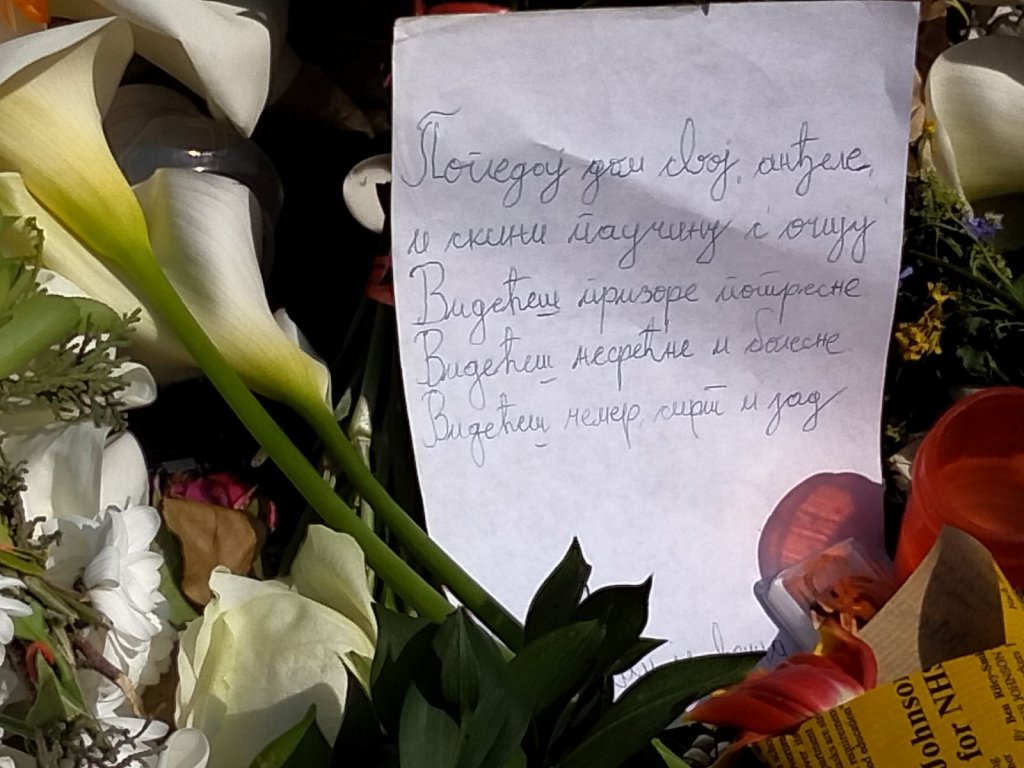 Погледај дом свој, анђеле,
и скини паучину с очију
Видећеш призоре потресне
Видећеш несрећне и болесне
Видећеш чемер, смрт и јад
Johnso
for NHS
Ben
JOHNSON